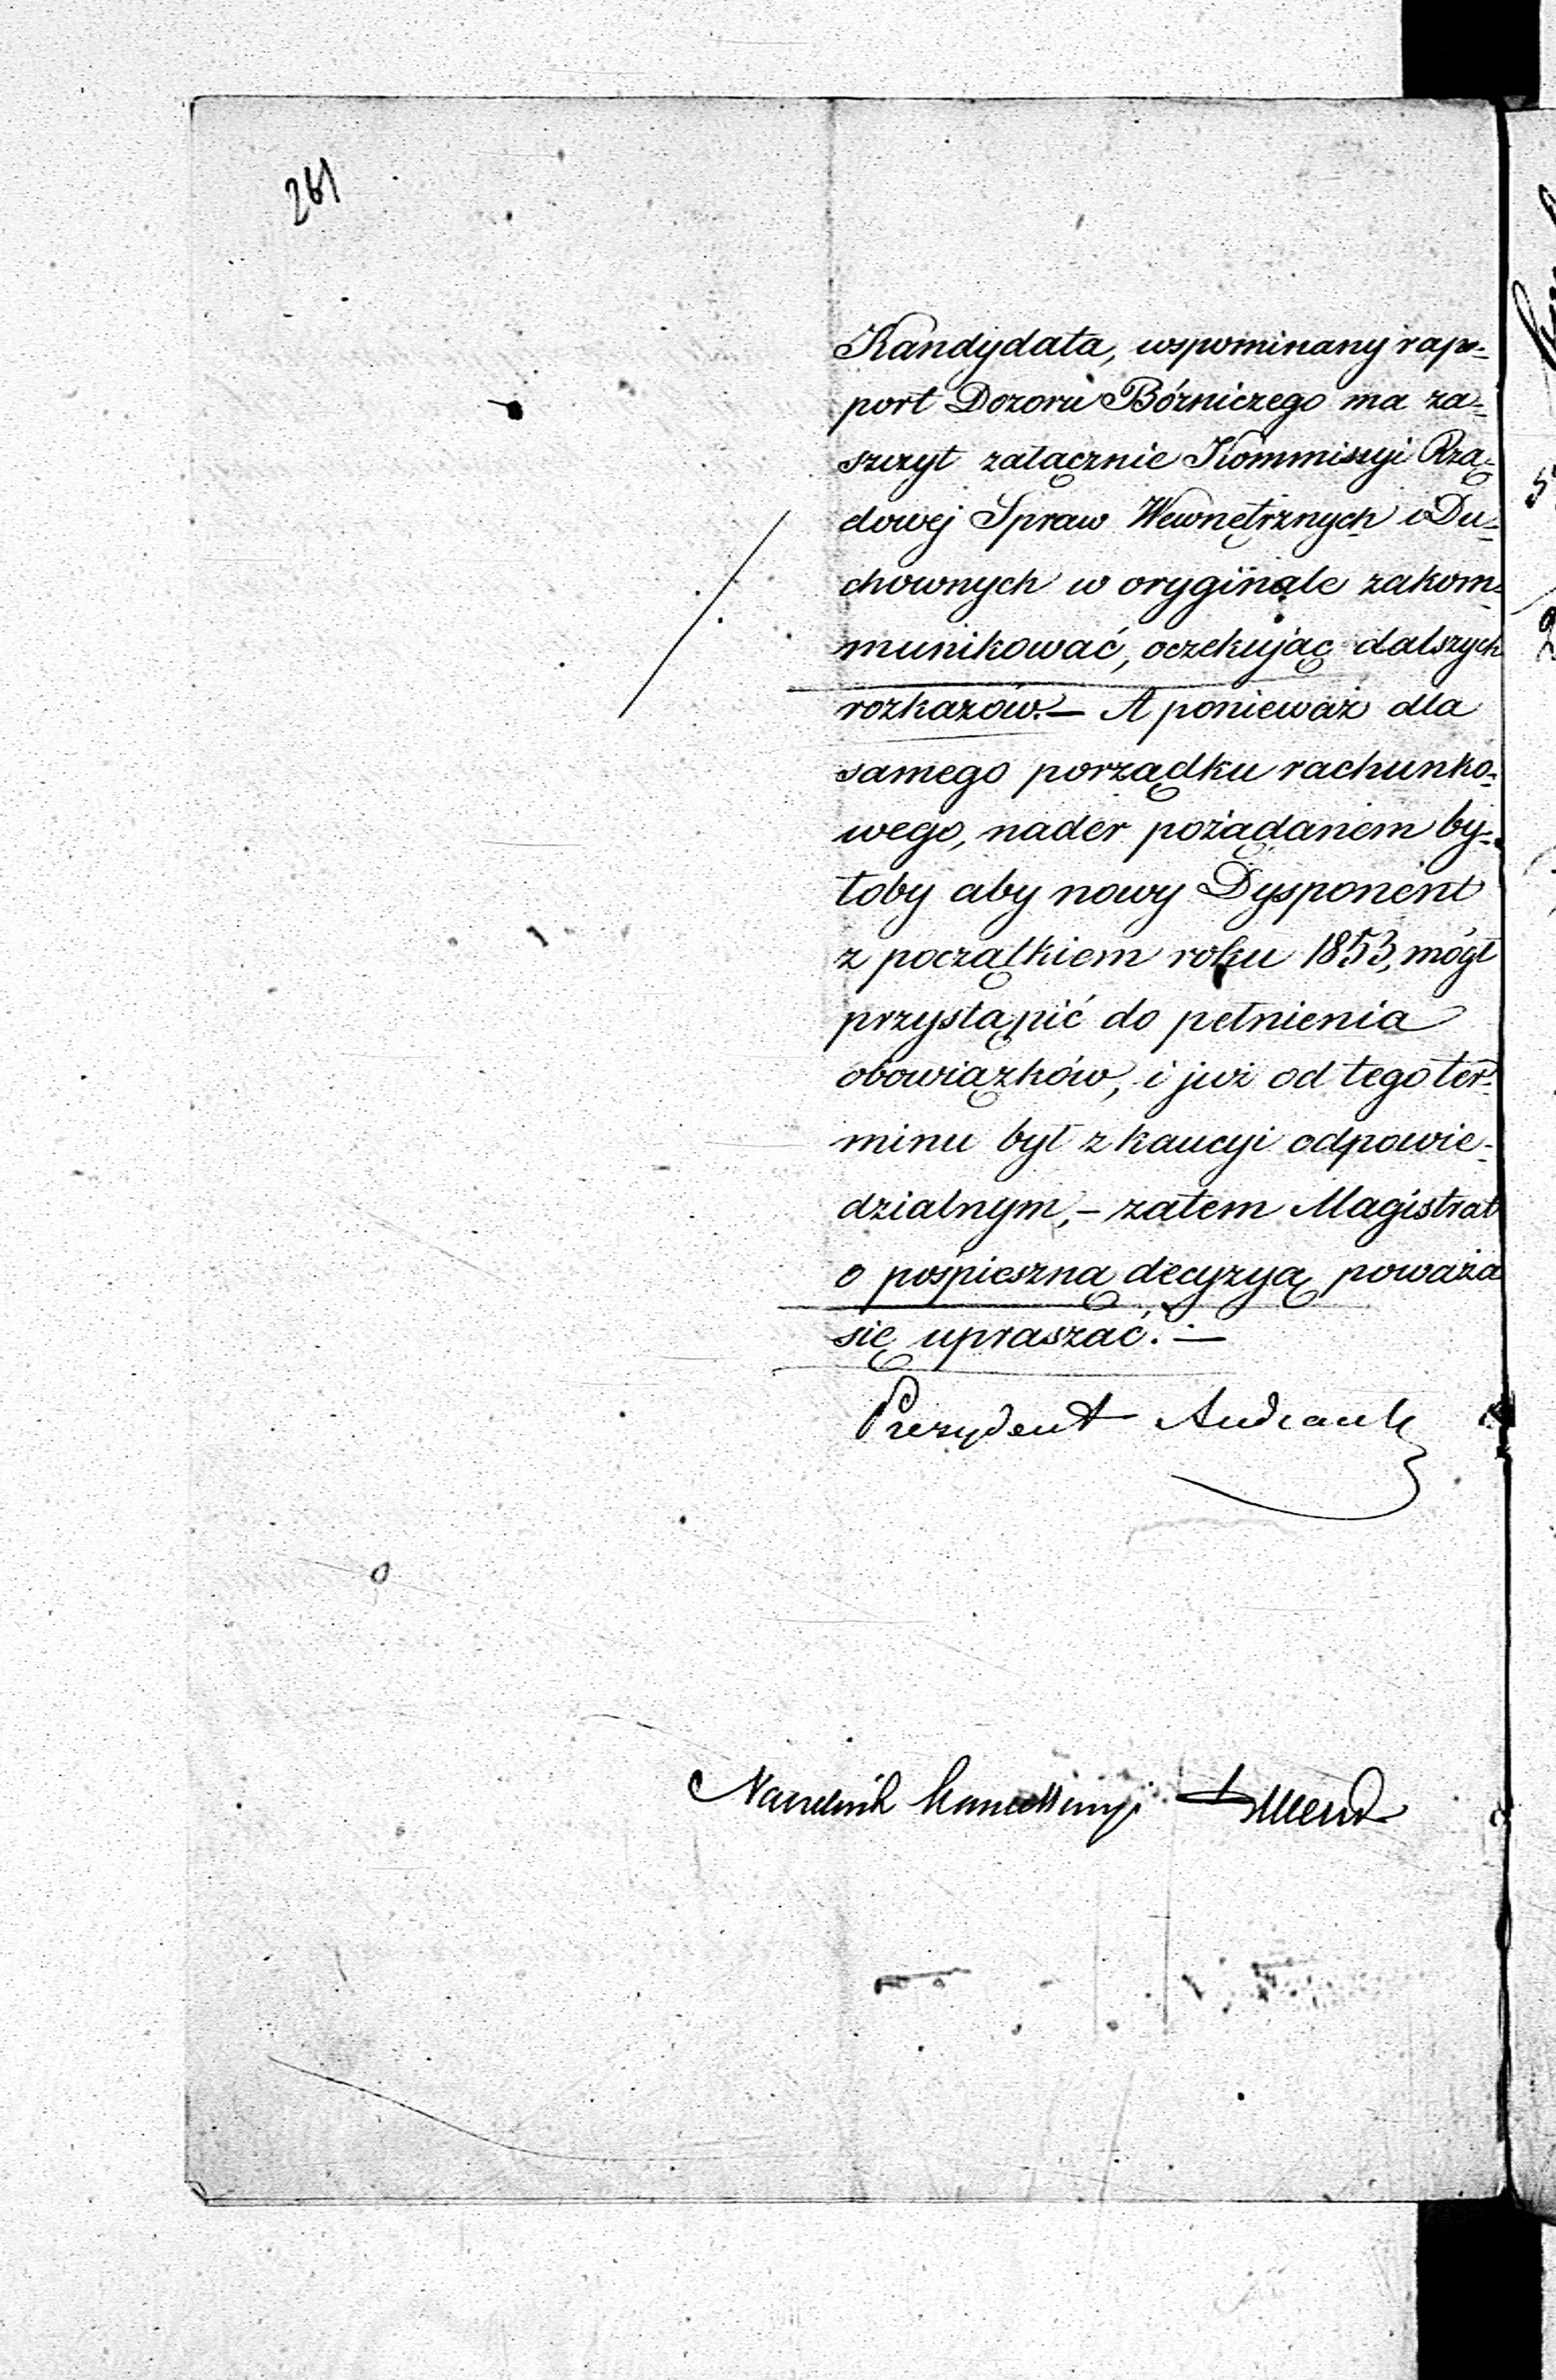 261
Kandydata, wspominany rap-
port Dozoru Bóżniczego ma za-
szczyt załącznie Kommissyi Rzą-
dowej Spraw Wewnętrznych i Du-
chownych w oryginale zakom-
munikować, oczekując dalszych
rozkazów. — A ponieważ dla
samego porządku rachunko-
wego, nader pożądanem by-
łoby aby nowy Dysponent
z początkiem roku 1853, mógł
przystąpić do pełnienia
obowiązków, i już od tego ter-
minu był z kaucyi odpowie-
dzialnym, — zatem Magistrat
o pośpieszną decyzyą poważa
się upraszać. —
Prezydent Andrault
Naczelnik Kancellaryi